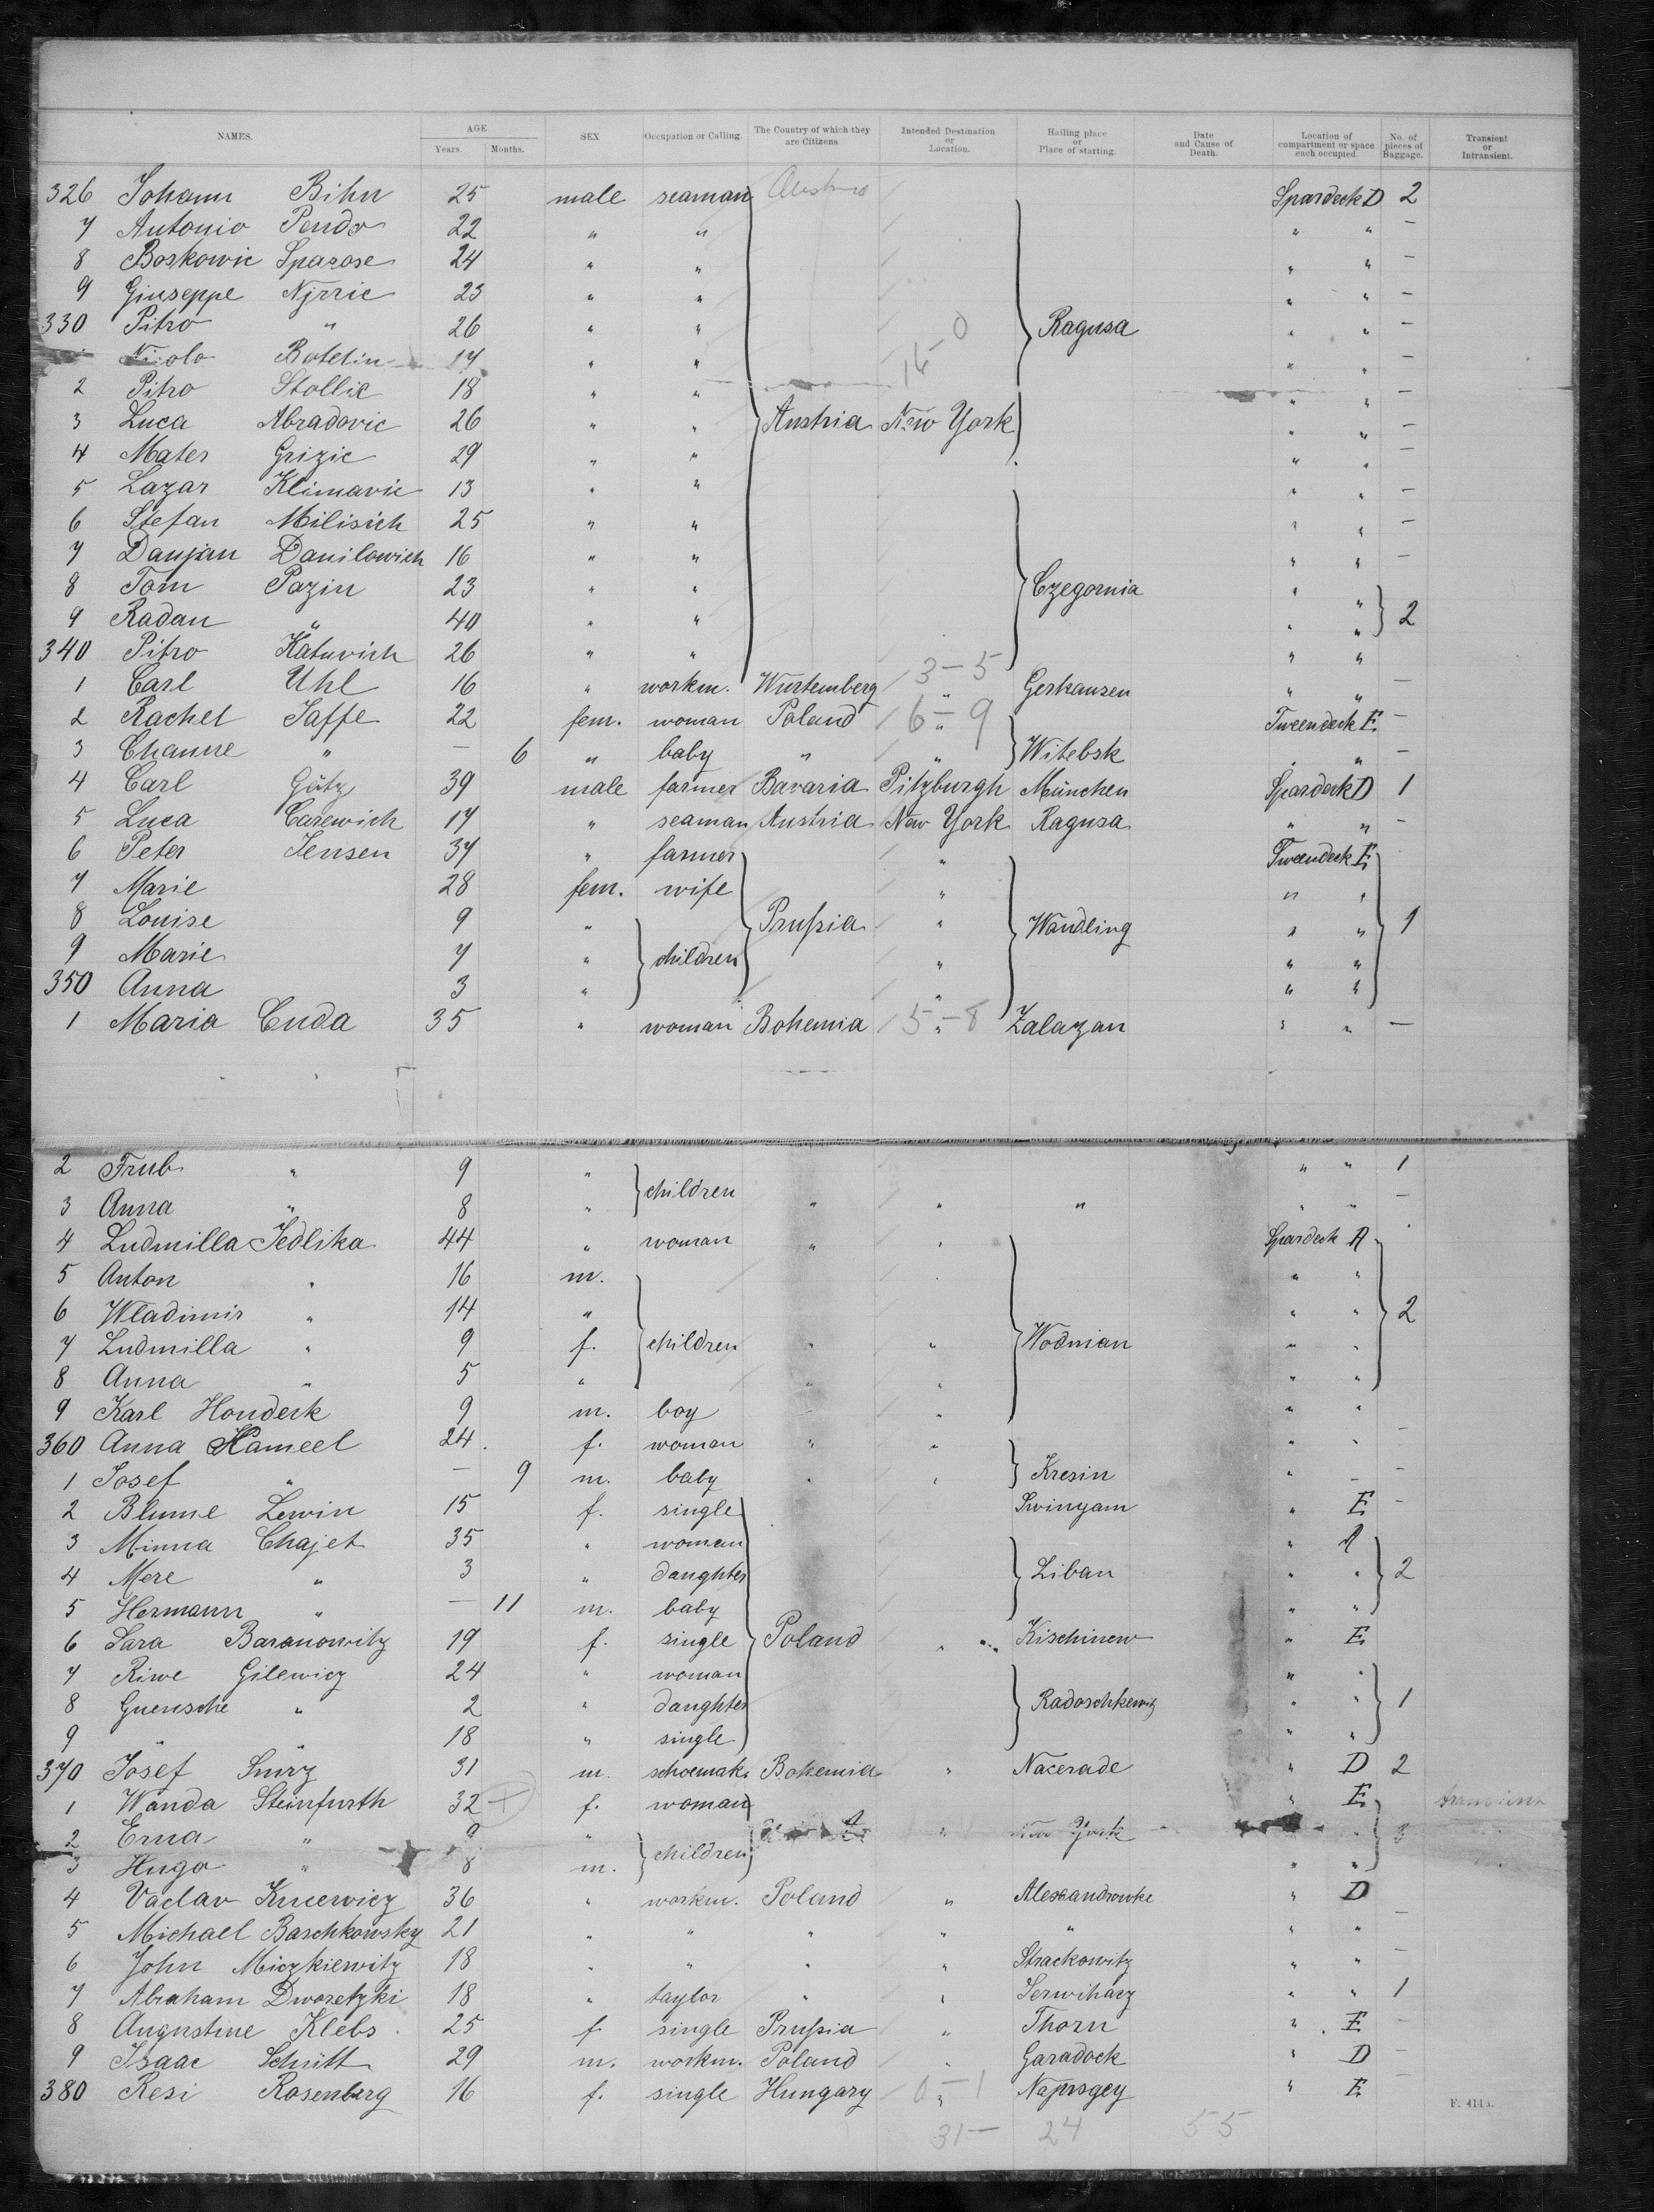 NAMES. AGE Years. Months. SEX Occupation or Calling. The Country of which they are Citizens. Intended Destination or Location. Hailing place or Place of starting. Date and Cause of Death. Location of compartment or space each occupied. No. of pieces of Baggage. Transient or Intransient.
326 Johann Bihn 25 male seaman Austria Spardeck D 2
7 Antonio Pendo 22 " " " " —
8 Boskowic Sparose 24 " " " " —
9 Giuseppe Njrric 23 " " " " —
330 Pitro " 26 " " Ragusa " " —
Nicolo Batelin 17 " " 16-0 " " —
2 Pitro Stollic 18 " " " " —
3 Luca Abradovic 26 " " Austria New York " " —
4 Mates Grizic 29 " " " " —
5 Lazar Klimavic 13 " " " " —
6 Stefan Milisich 25 " " " " —
7 Danjan Danilowich 16 " " " " —
8 Tom Pazin 23 " " Czegornia " "
9 Radan " 40 " " " " 2
340 Pitro Katuvich 26 " " " "
1 Carl Uhl 16 " workm. Wurtemberg 3-5 " Gerhausen " " —
2 Rachel Jaffe 22 fem. woman Poland 6-9 " Tweendeck E —
3 Channe " — 6 " baby " " Witebsk " " —
4 Carl Götz 39 male farmer Bavaria Pitzburgh München Spardeck D 1
5 Luca Carewich 17 " seaman Austria New York Ragusa " " —
6 Peter Jensen 37 " farmer " Tweendeck E
7 Marie 28 fem. wife " " "
8 Louise 9 " Prussia " Wandling " " 1
9 Marie 7 " children " " "
350 Anna 3 " " " "
1 Maria Cuda 35 " woman Bohemia 5-8 " Zalazan " " —
2 Frub " 9 " " " 1
3 Anna " 8 " children " " " " " —
4 Ludmilla Jedlika 44 " woman " " Spardeck A
5 Anton " 16 m. " " "
6 Wladimir " 14 " " " 2
7 Ludmilla " 9 f. children " " Wodnian " "
8 Anna " 5 " " " " "
9 Karl Honderk 9 m. boy " " "
360 Anna Hameel 24 f. woman " " " " —
1 Josef " — 9 m. baby " " Kresin " — —
2 Blume Lewin 15 f. single Swinyam " E —
3 Minna Chajet 35 " woman " A
4 Mere " 3 " daughter Liban " " 2
5 Hermann " — 11 m. baby " "
6 Sara Baranowitz 19 f. single Poland " Kischinew " E
7 Riwe Gilewicz 24 " woman " "
8 Guensche " 2 " daughter Radoschkewitz " " 1
9 " 18 " single " "
370 Josef Smrz 31 m. schoemak. Bohemia " Nacerade " D 2
1 Wanda Steinfurth 32 + f. woman " E
2 Erna " 9 " " New York " 3
3 Hugo " 8 m. children " "
4 Vaclav Kucewicz 36 " workm. Poland " Alexandrowke " D
5 Michael Baschkowsky 21 " " " " " " " —
6 John Miczkiewitz 18 " " " " Strackowitz " " —
7 Abraham Dworetzki 18 " taylor " " Serwihacz " " 1
8 Augustine Klebs 25 f. single Prussia " Thorn " E —
9 Isaac Schütt 29 m. workm. Poland " Garadock " D —
380 Resi Rosenberg 16 f. single Hungary 0-1 " " E —
31- 24 55